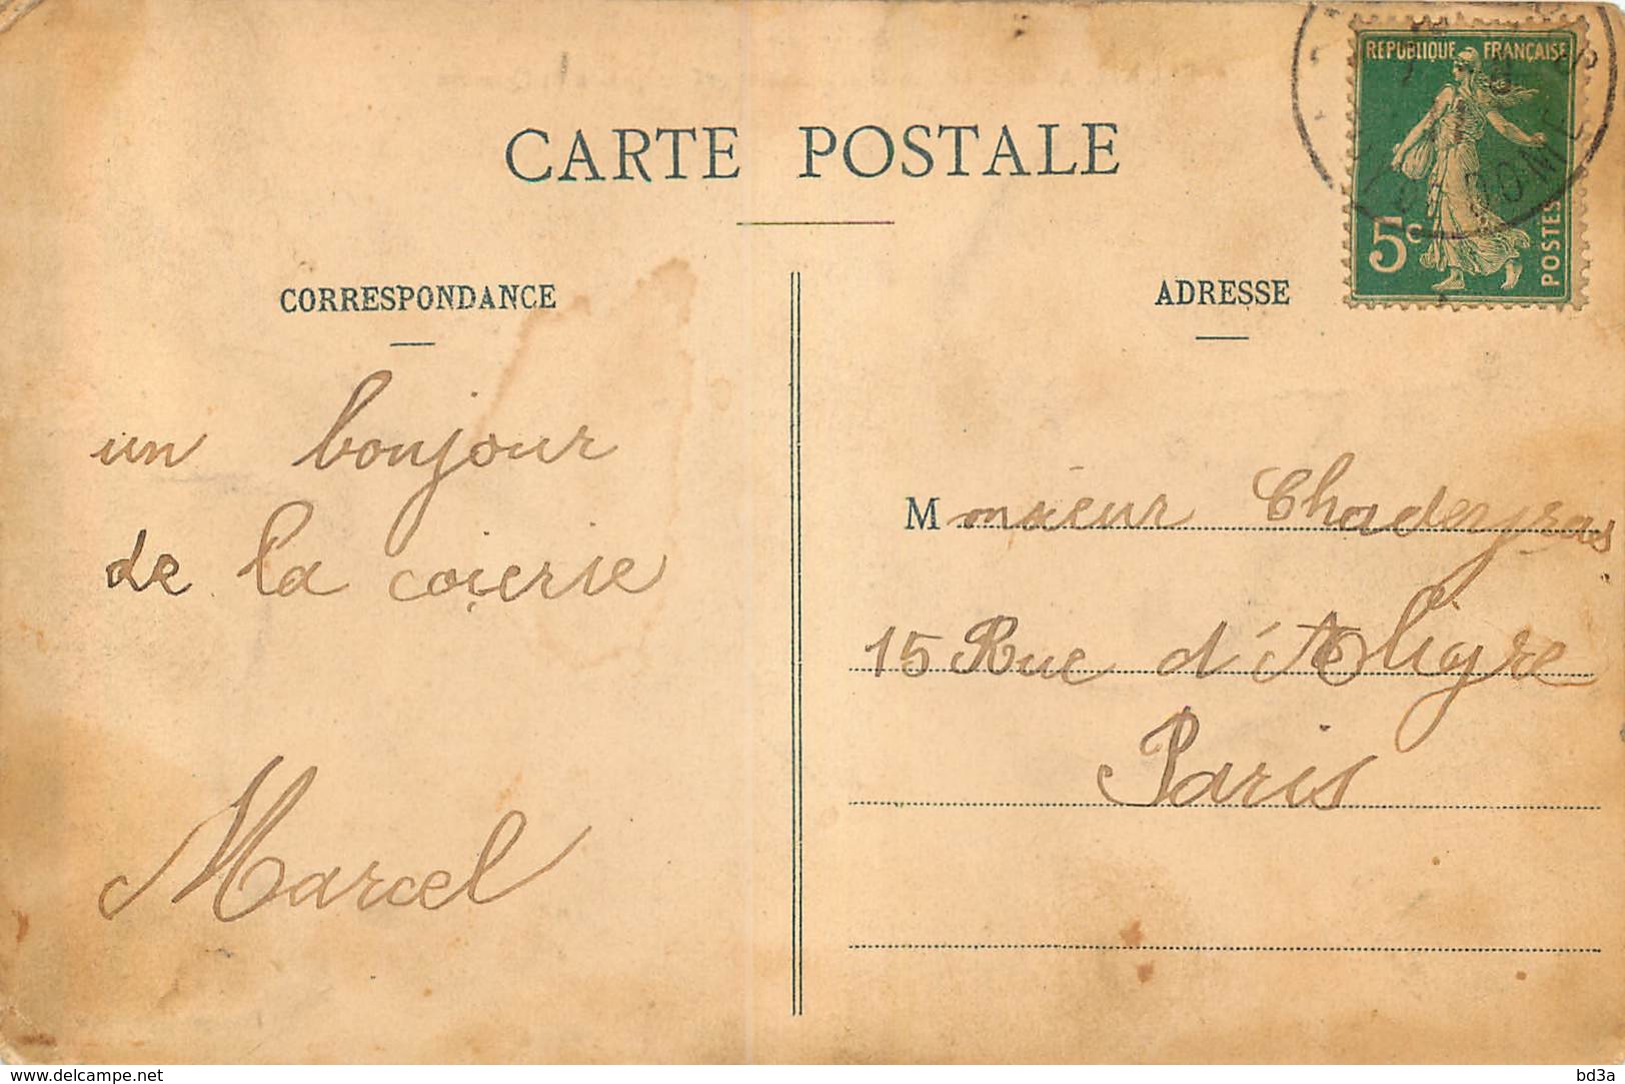 CARTE POSTALE
REPUBLIQUE FRANÇAISE
5c
POSTES
DOME
CORRESPONDANCE
un bonjour
de la coierie
Marcel
ADRESSE
M monsieur Chadeyras
15 Rue d'Aligre
Paris
www.delcampe.net
bd3a